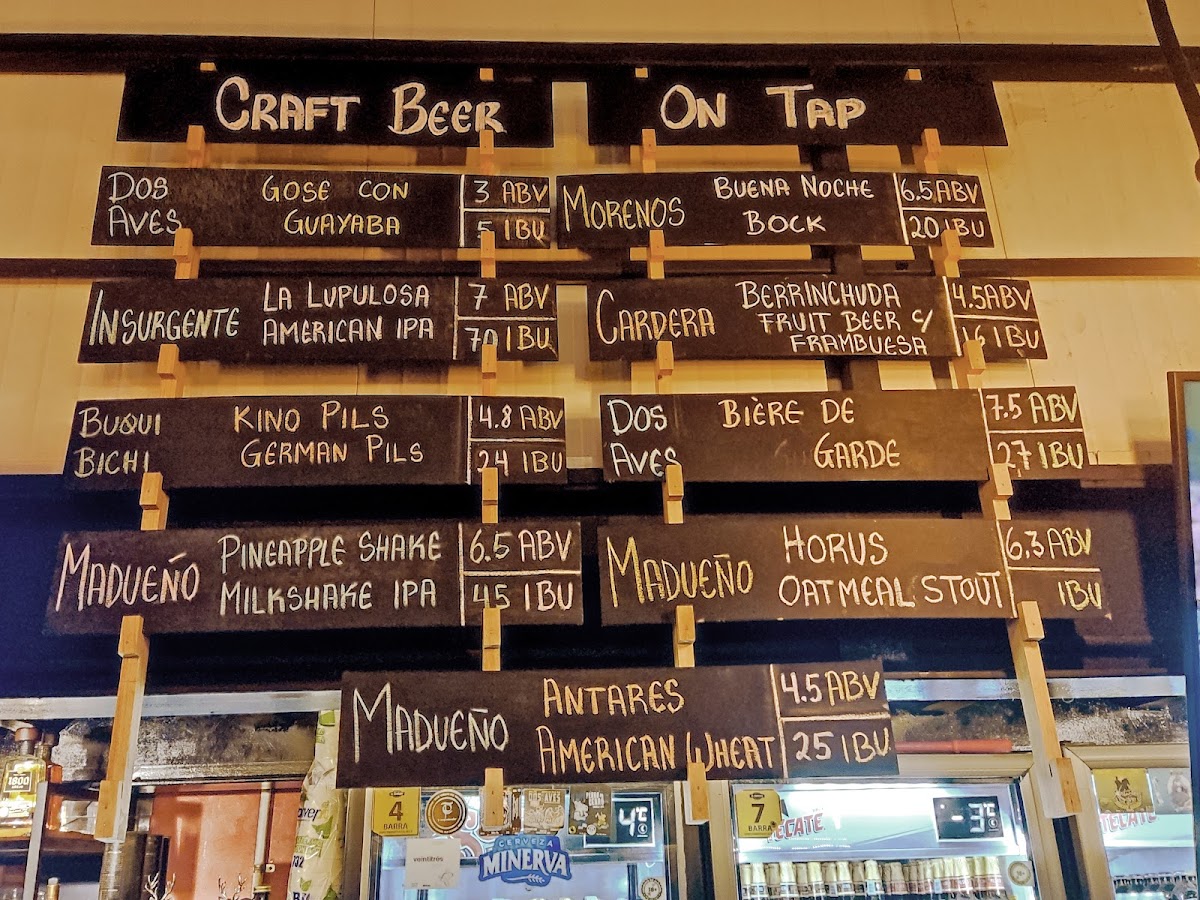 CRAFT BEER
ON TAP
DOS AVES
GOSE CON
GUAYABA
3 ABV
5 IBU
MORENOS
BUENA NOCHE
BOCK
6.5 ABV
20 IBU
INSURGENTE
LA LUPULOSA
AMERICAN IPA
7 ABV
70 IBU
CARDERA
BERRINCHUDA
FRUIT BEER C/
FRAMBUESA
4.5 ABV
16 IBU
BUQUI
BICHI
KINO PILS
GERMAN PILS
4.8 ABV
24 IBU
DOS
AVES
BIÈRE DE
GARDE
7.5 ABV
27 IBU
MADUEÑO
PINEAPPLE SHAKE
MILKSHAKE IPA
6.5 ABV
45 IBU
MADUEÑO
HORUS
OATMEAL STOUT
6.3 ABV
IBU
MADUEÑO
ANTARES
AMERICAN WHEAT
4.5 ABV
25 IBU
1800
4
BARRA
DOS AVES
4°c
CERVEZA
MINERVA
7
BARRA
TECATE
-3°c